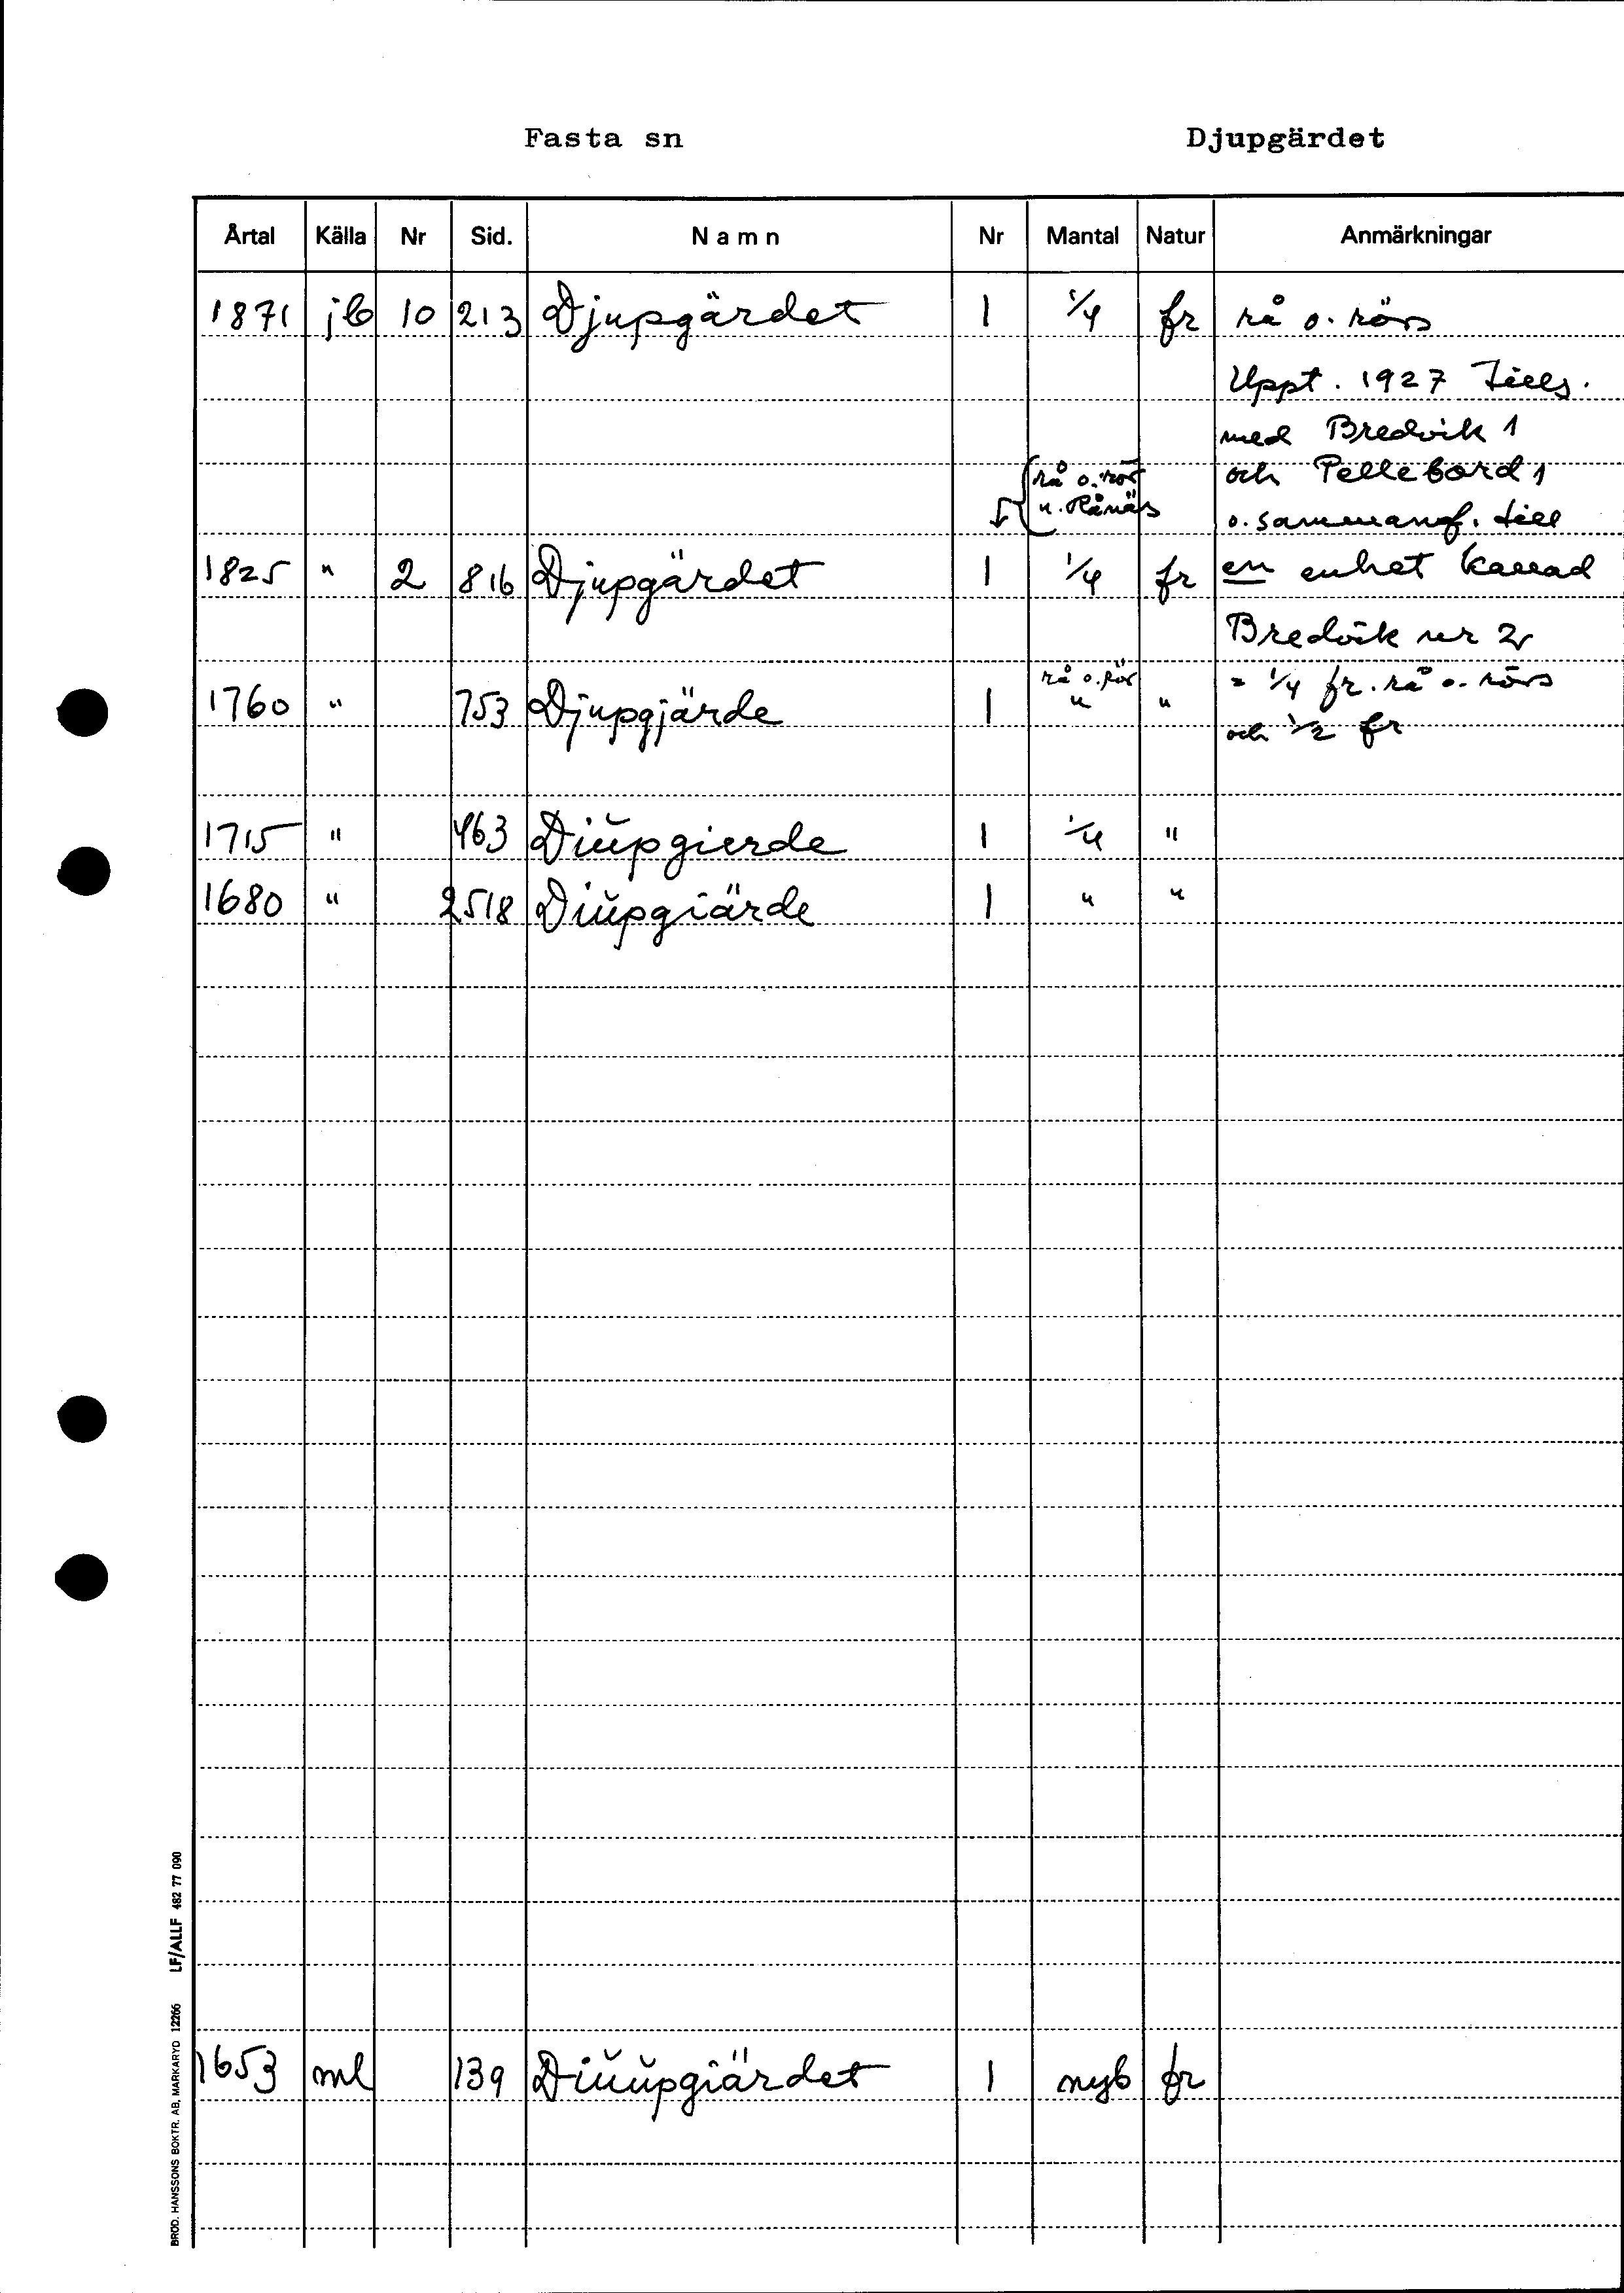 Fasta sn Djupgärdet
Årtal Källa Nr Sid. Namn Nr Mantal Natur Anmärkningar
1871 jb 10 213 Djupgärdet 1 1/4 fr rå o. rörs
Uppt. 1927 tills.
med Bredvik 1
rå o. rör och Pellebord 1
u. Rånäs o. sammanf. till
1825 " 2 816 Djupgärdet 1 1/4 fr en enhet kallad
Bredvik nr 2
rå o. rör = 1/4 fr. rå o. rörs
1760 " 753 Djupgjärde 1 " " och 1/2 fr
1715 " 463 Diŭpgierde 1 1/4 "
1680 " 2518 Diŭpgiärde 1 " "
1653 ml 139 Diŭŭpgiärdet 1 nyb fr
BROD. HANSSONS BOKTR. AB, MARKARYD 12266 LF/ALLF 482 77 090